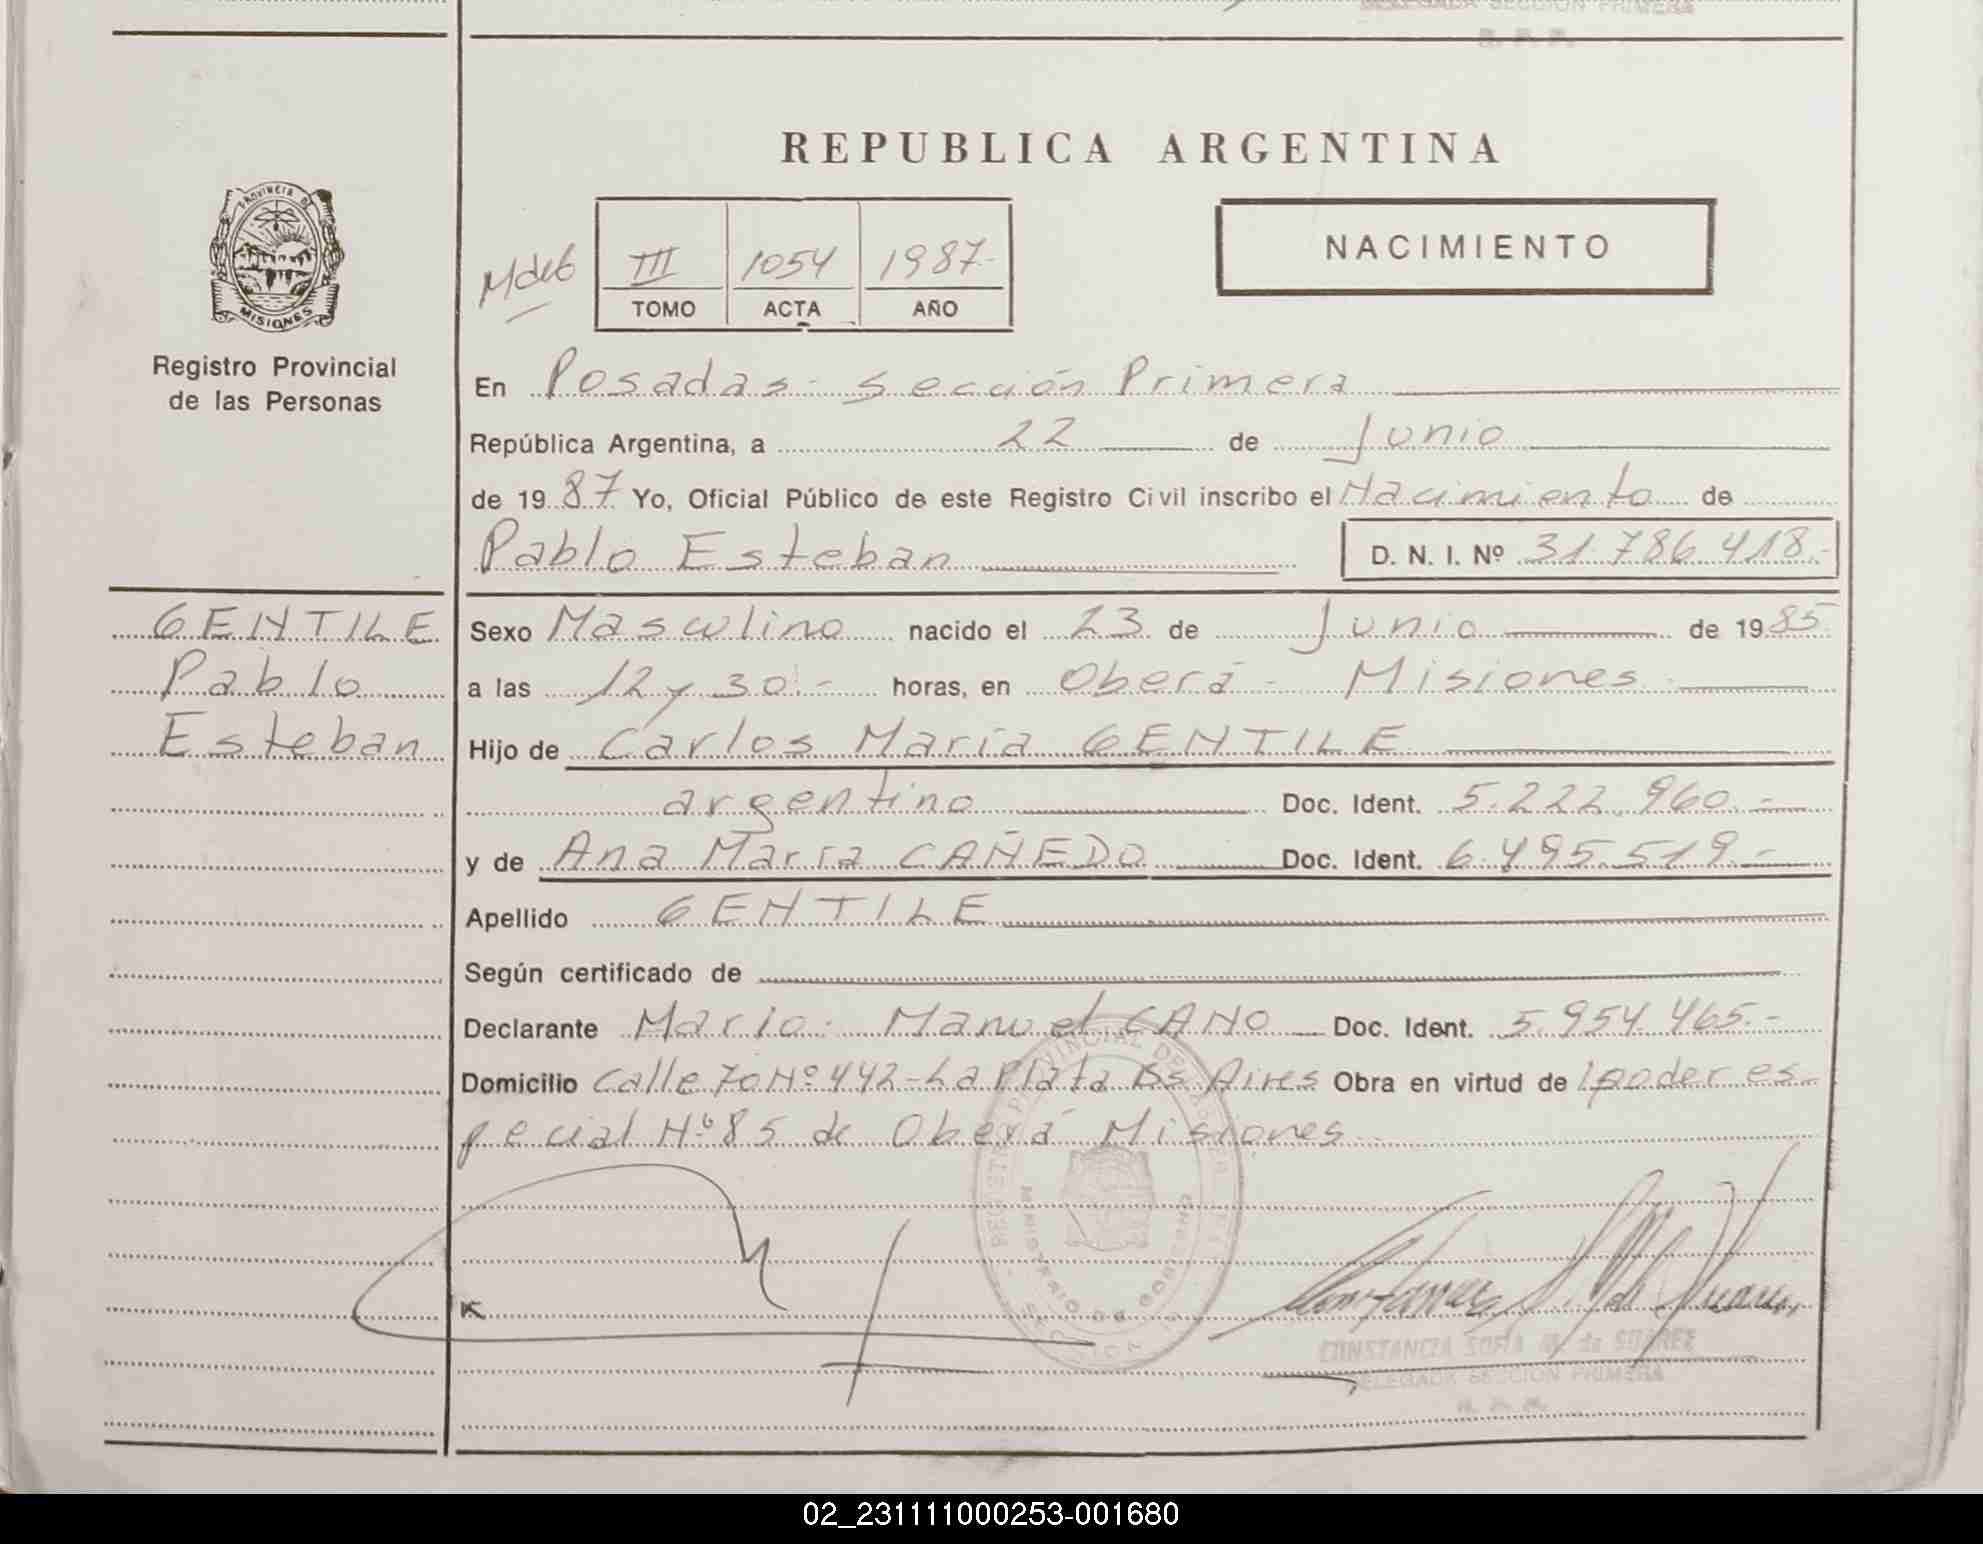 DELEGADA SECCION PRIMERA
R. P. P.
REPUBLICA ARGENTINA
PROVINCIA DE
MISIONES
Registro Provincial
de las Personas
III 1054 1987.-
TOMO ACTA AÑO
NACIMIENTO
En Posadas - Sección Primera
República Argentina, a 22 de Junio
de 19 87 Yo, Oficial Público de este Registro Civil inscribo el Nacimiento de
Pablo Esteban D. N. I. Nº 31.786.418.-
GENTILE
Pablo
Esteban
Sexo Masculino nacido el 23 de Junio de 19 85
a las 12 y 30.- horas, en Oberá - Misiones
Hijo de Carlos María GENTILE
argentino Doc. Ident. 5.222.960.-
y de Ana María CAÑEDO Doc. Ident. 6.495.519.-
Apellido GENTILE
Según certificado de
Declarante Mario Manuel CANO Doc. Ident. 5.954.465.-
Domicilio Calle 70 Nº 442 - La Plata Bs Aires Obra en virtud de poder es-
pecial Nº 85 de Oberá Misiones
REGISTRO PROVINCIAL DE LAS PERSONAS
MINISTERIO DE GOBIERNO
CONSTANCIA SOFIA M. de SUAREZ
DELEGADA SECCION PRIMERA
R. P. P.
02_231111000253-001680